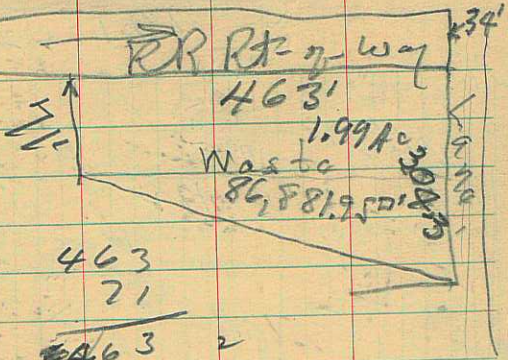 34'
RR Rt-of-Way
463'
1.99 Ac
Waste
86,881.95□'
308.3
Lane
463
71
463